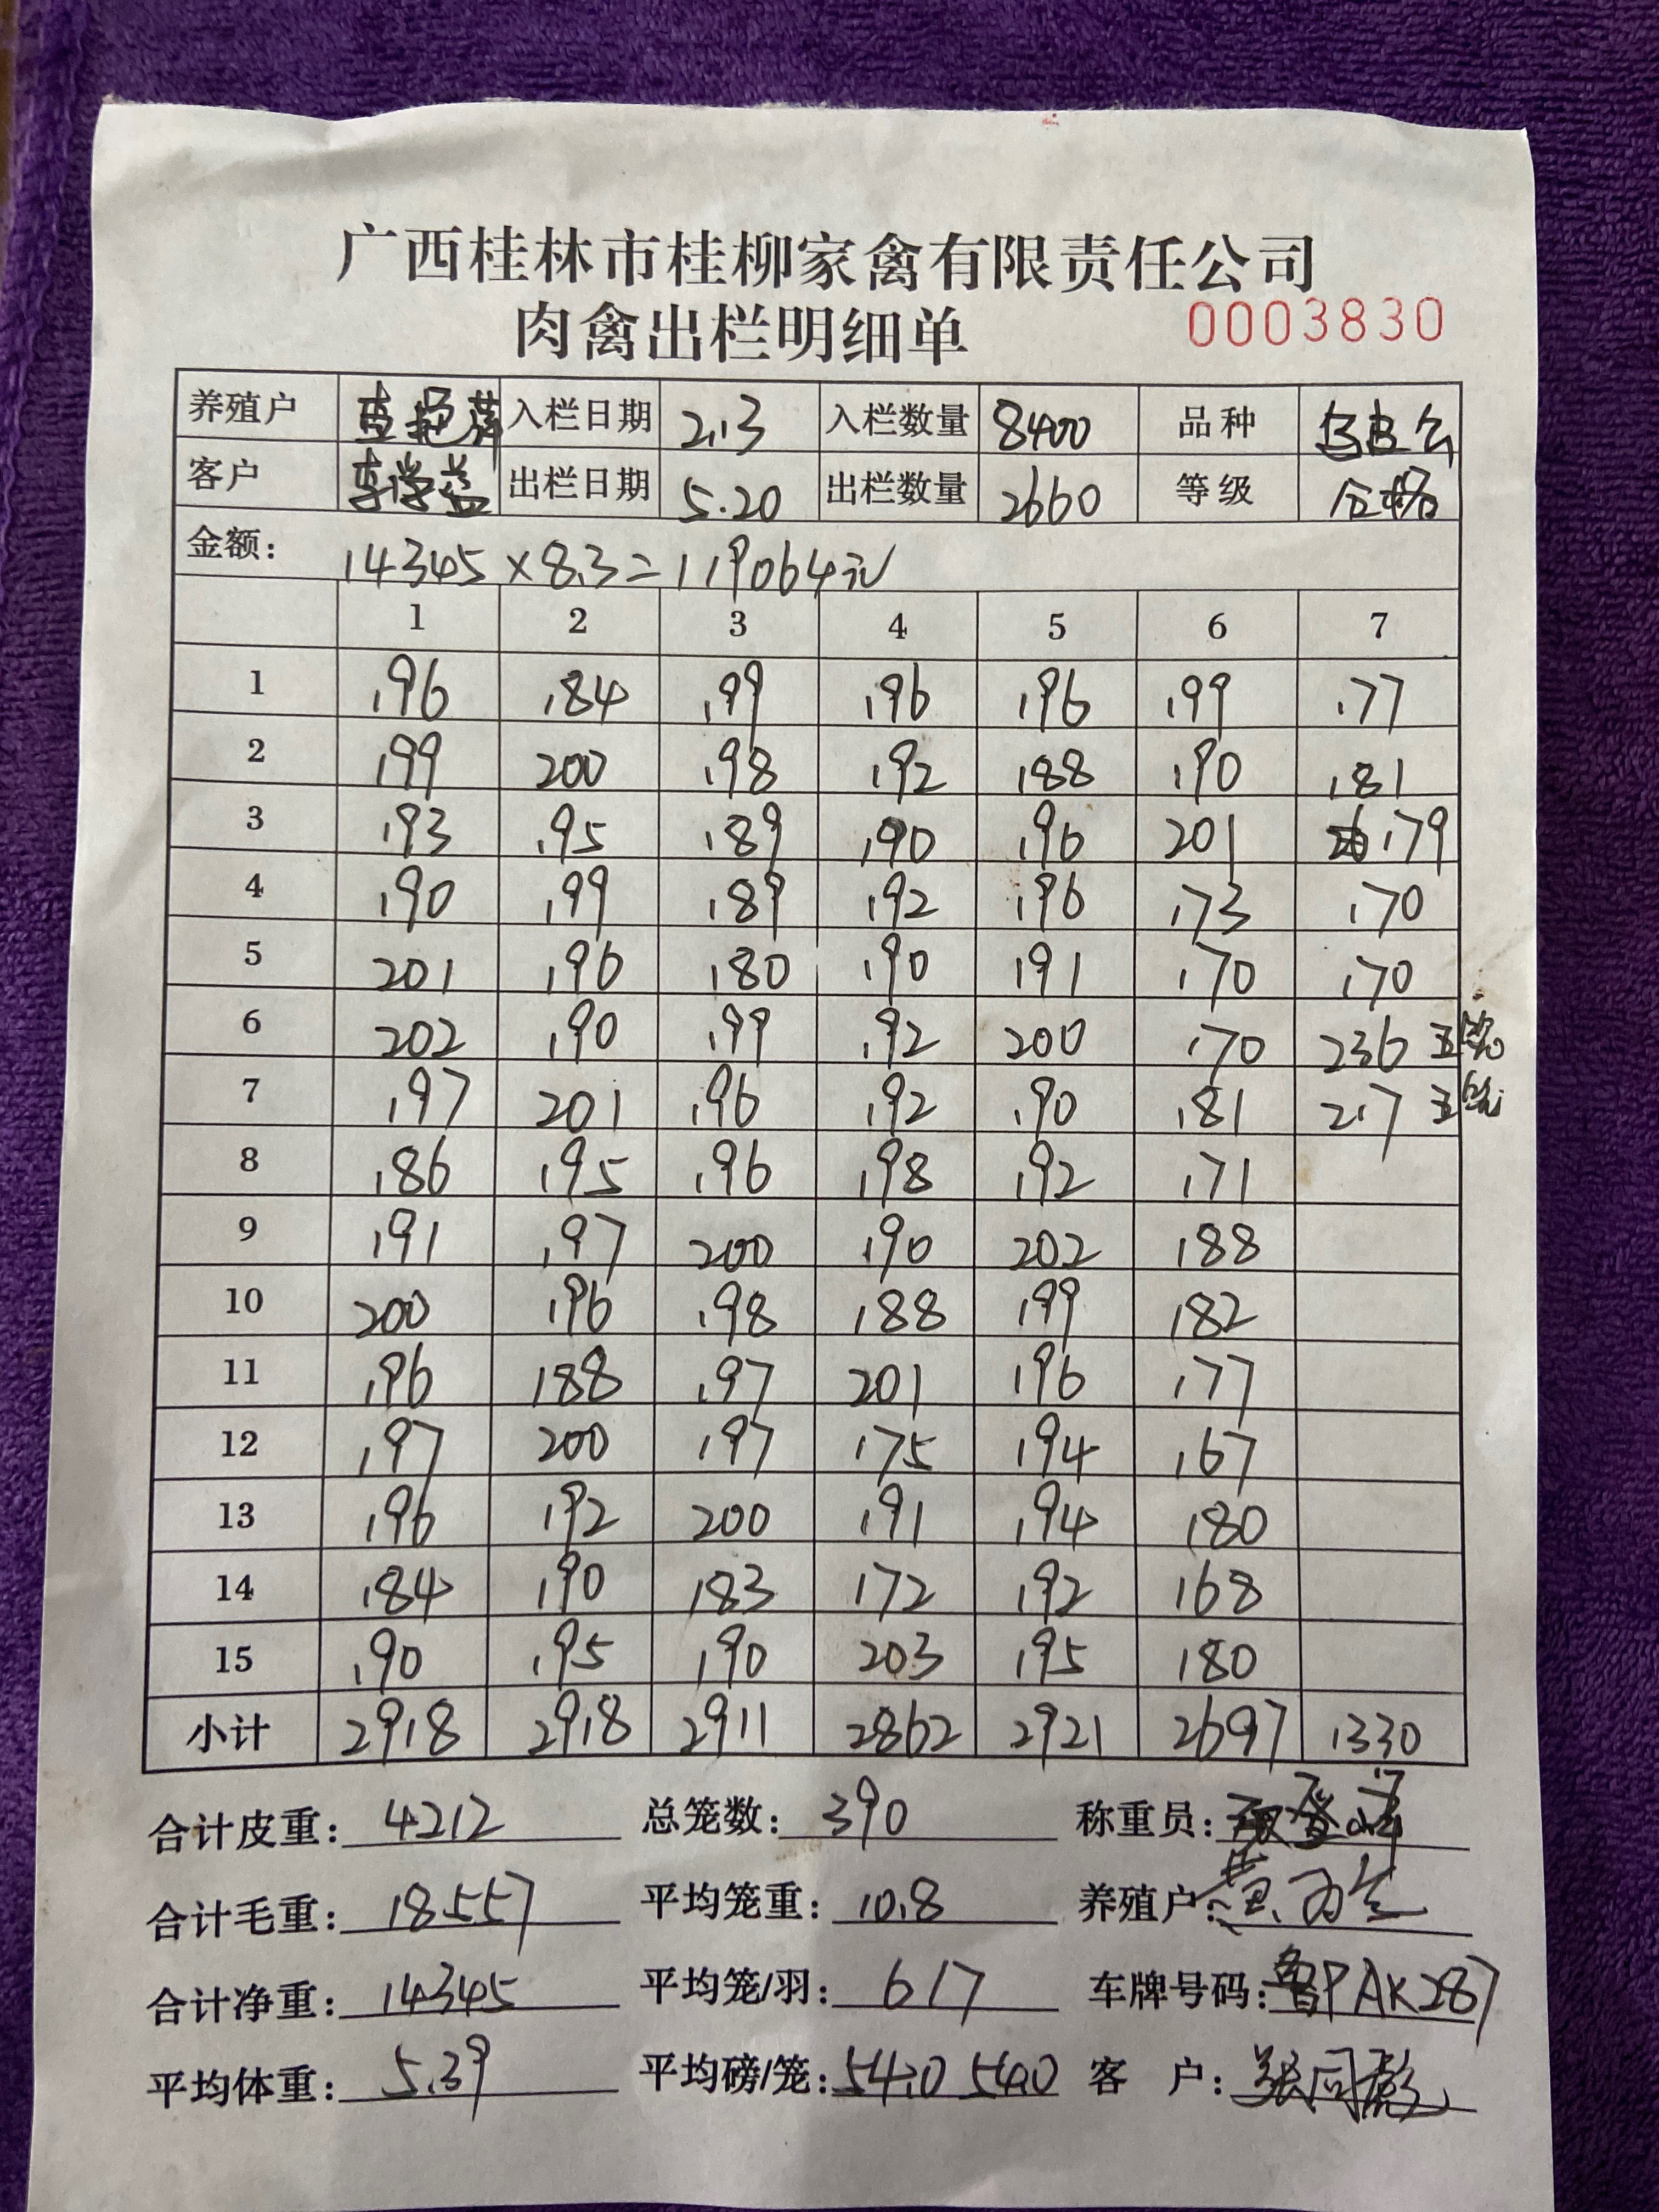 广西桂林市桂柳家禽有限责任公司
肉禽出栏明细单 0003830
养殖户 入栏日期 2.13 入栏数量 8400 品种 乌皮公
客户 李学益 出栏日期 5.20 出栏数量 2660 等级 合格
金额: 14345×8.3=119064元
1 2 3 4 5 6 7
1 196 184 199 196 196 199 177
2 199 200 198 192 188 190 181
3 193 195 189 190 196 201 179
4 190 199 189 192 196 173 170
5 201 196 180 190 191 170 170
6 202 190 199 192 200 170 236 五笼
7 197 201 196 192 190 181 217 五笼
8 186 195 196 198 192 171
9 191 197 200 190 202 188
10 200 196 198 188 199 182
11 196 188 197 201 196 177
12 197 200 197 175 194 167
13 196 192 200 191 194 180
14 184 190 183 172 192 168
15 190 195 190 203 195 180
小计 2918 2918 2911 2862 2921 2697 1330
合计皮重: 4212 总笼数: 390 称重员:
合计毛重: 18557 平均笼重: 10.8 养殖户:
合计净重: 14345 平均笼/羽: 617 车牌号码: 鲁PAK287
平均体重: 5.39 平均磅/笼: 54.0 540 客 户: 张同彪